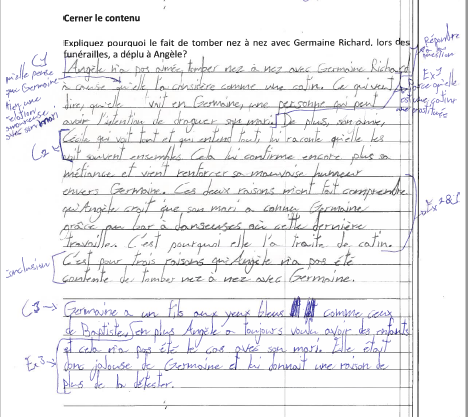 Cerner le contenu
Expliquez pourquoi le fait de tomber nez à nez avec Germaine Richard, lors des
funérailles, a déplu à Angèle?
Angèle n'a pas aimé tomber nez à nez avec Germaine Richard
à cause qu'elle la considère comme une catin. Ce qui veut
dire, qu'elle voit en Germaine, une personne qui peut
avoir l'intention de draguer son mari. De plus, son amie,
Cécile qui voit tout et qui entend tout, lui raconte qu'elle les
voit souvent ensembles. Cela lui confirme encore plus sa
méfiance et vient renforcer sa mauvaise humeur
envers Germaine. Ces deux raisons m'ont fait comprendre
qu'Angèle croit que son mari a connu Germaine
grâce au bar à danseuses où cette dernière
travaille. C'est pourquoi elle l'a traité de catin.
C'est pour trois raisons qu'Angèle n'a pas été
contente de tomber nez à nez avec Germaine.
Germaine a un fils aux yeux bleus comme ceux
de Baptiste. En plus Angèle a toujours voulu avoir des enfants
et cela n'a pas été le cas avec son mari. Elle était
donc jalouse de Germaine et lui donnait une raison de
plus de la détester.
C1
qu'elle pense
que Germaine
a une
relation
amoureuse
avec son mari
C2
conclusion
C3
Ex3
Répondre
à la
question
Ex1
parce qu'elle
est une catin